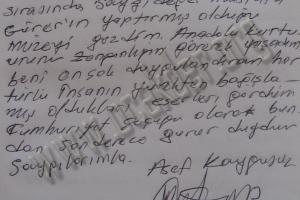 sırasında saygıdeğer
Gürer'in yaptırmış olduğu
müzeyi gezdim. Anadolu kurtu
görerek yaşadım
beni en çok duygulandıran her
türlü insanın yürekten bağışla
mış oldukları eserleri gördüm
Cumhuriyet olarak bun
dan son derece gurur duydum
Saygılarımla.
Asef Kaygusuz